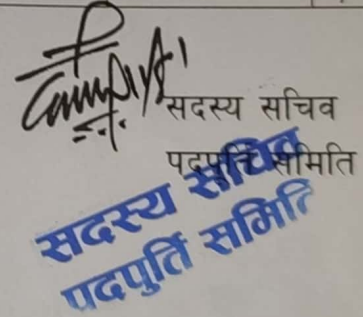 सदस्य सचिव
पदपुर्ति समिति
सदस्य सचिव
पदपुर्ति समिति